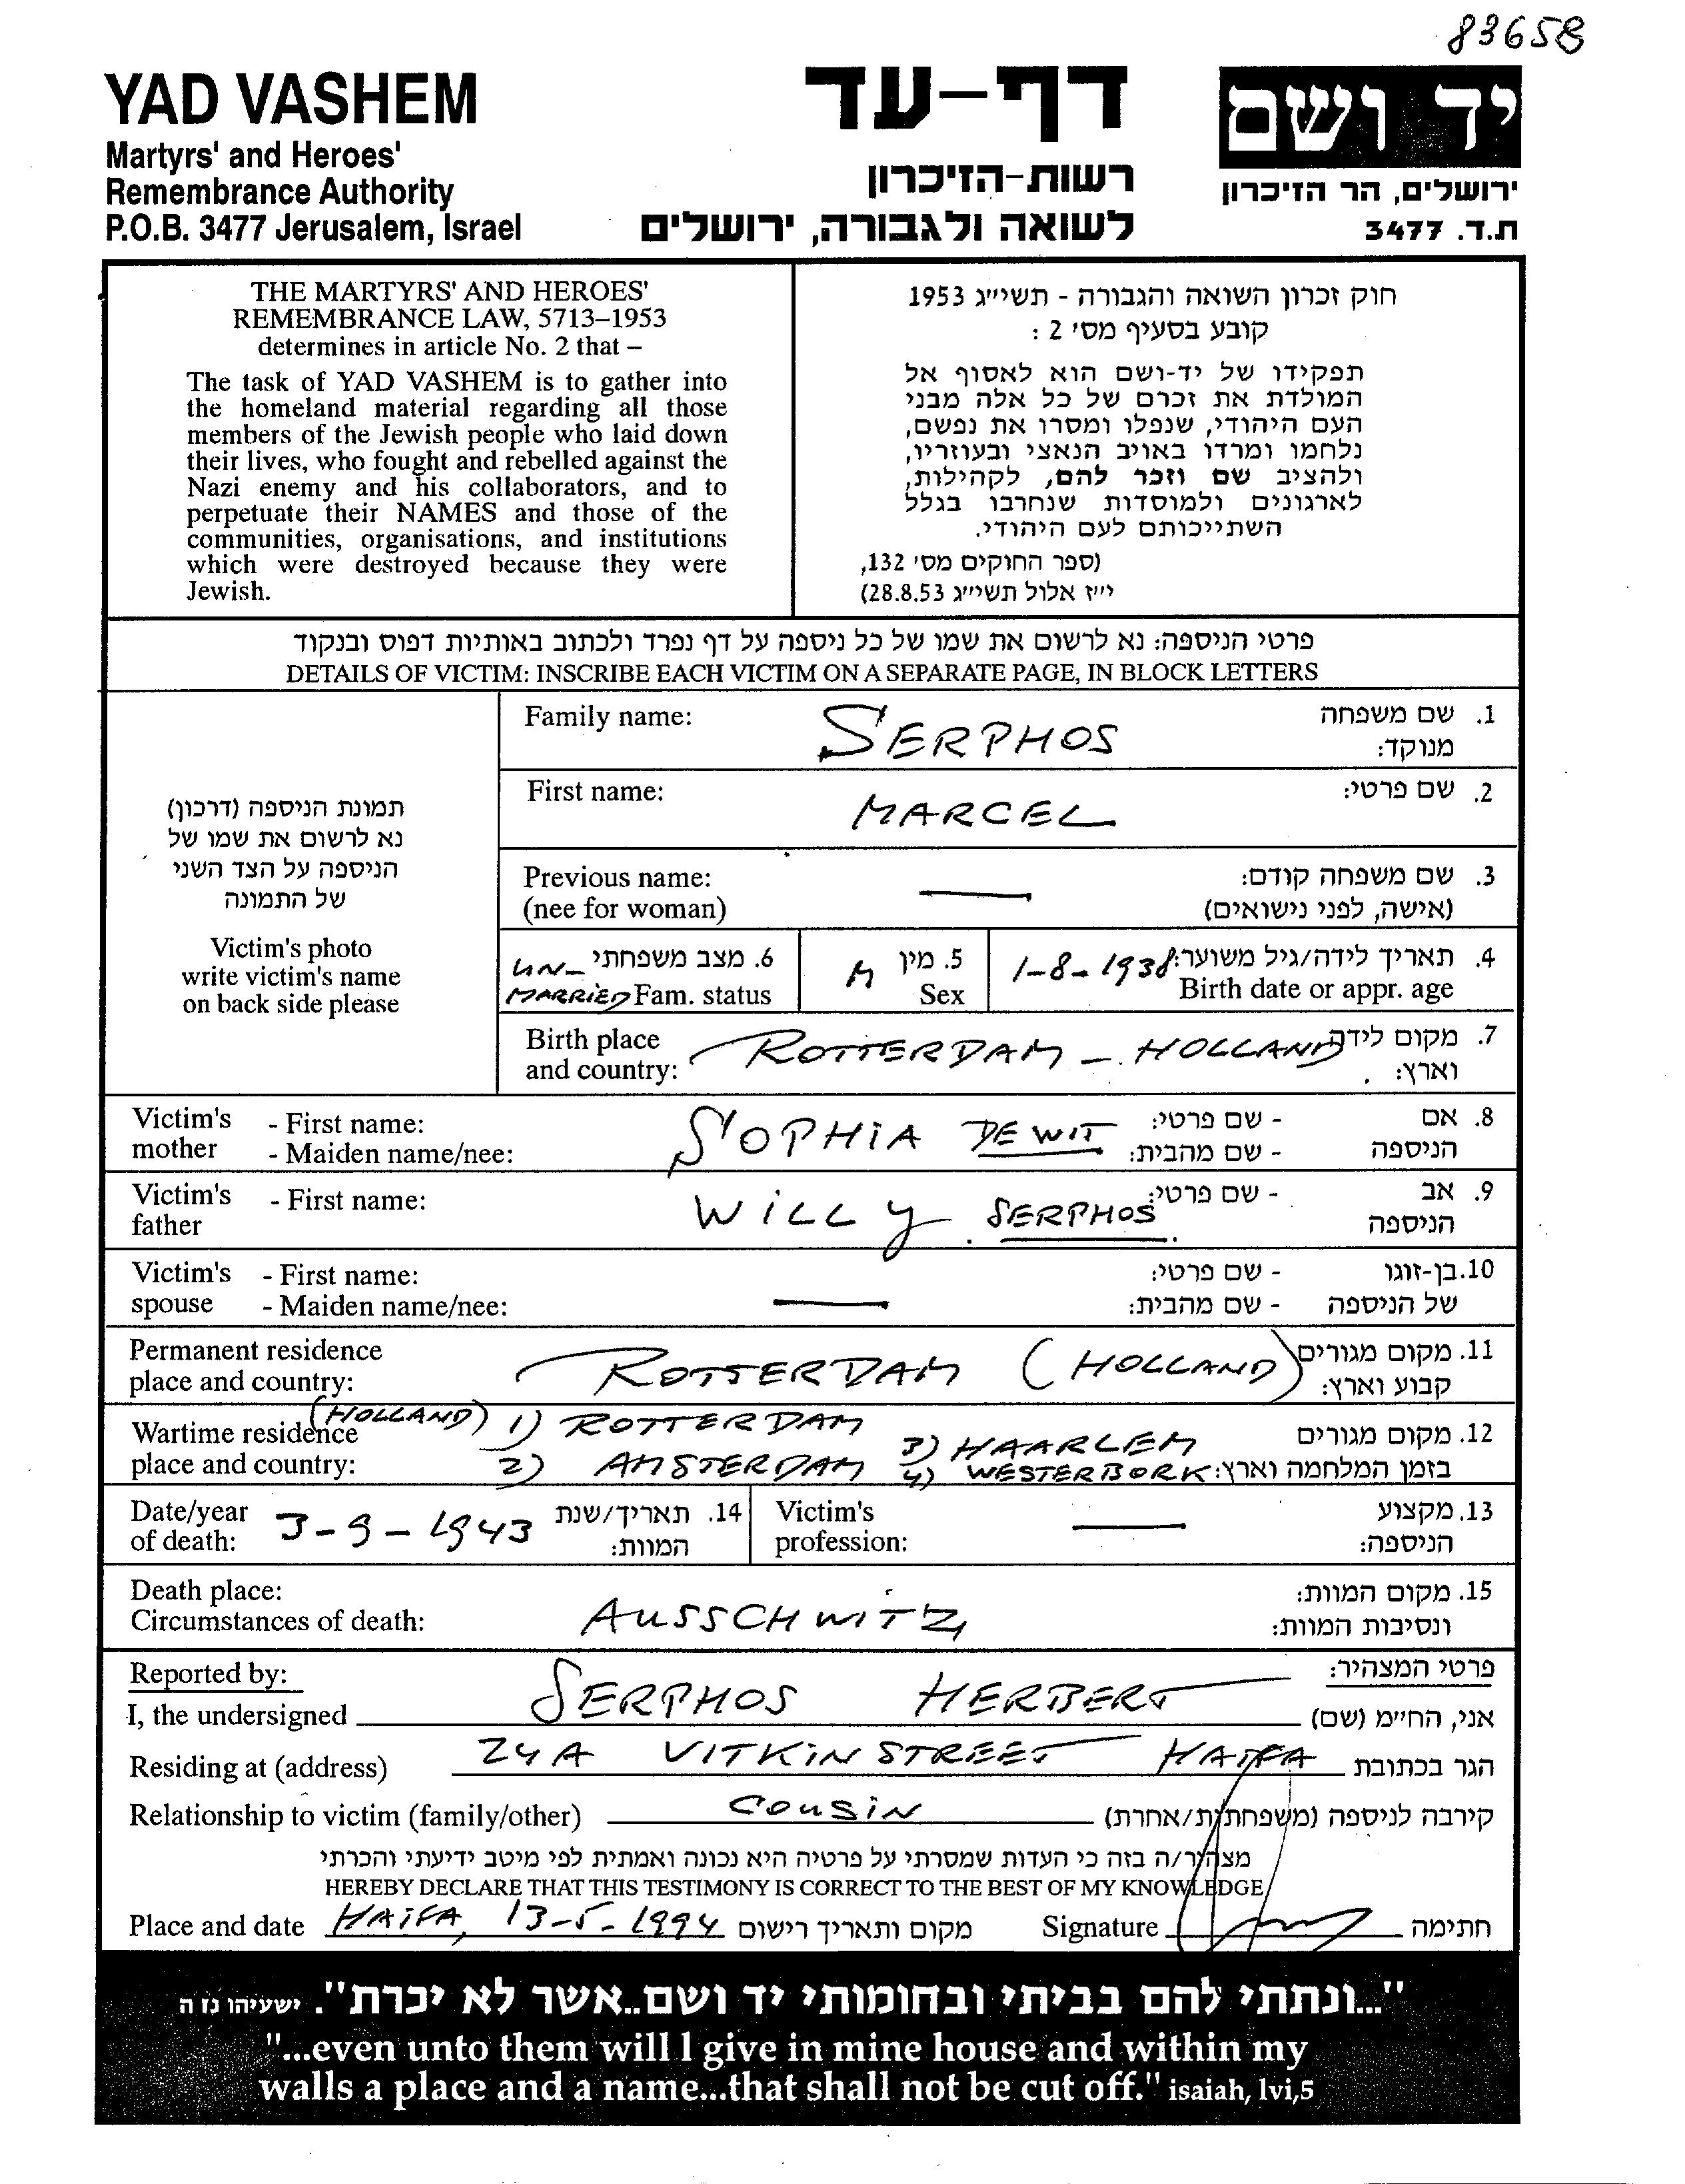 83658
YAD VASHEM
Martyrs' and Heroes'
Remembrance Authority
P.O.B. 3477 Jerusalem, Israel
דף-עד
רשות-הזיכרון
לשואה ולגבורה, ירושלים
יד ושם
ירושלים, הר הזיכרון
ת.ד. 3477
THE MARTYRS' AND HEROES'
REMEMBRANCE LAW, 5713–1953
determines in article No. 2 that –
The task of YAD VASHEM is to gather into
the homeland material regarding all those
members of the Jewish people who laid down
their lives, who fought and rebelled against the
Nazi enemy and his collaborators, and to
perpetuate their NAMES and those of the
communities, organisations, and institutions
which were destroyed because they were
Jewish.
חוק זכרון השואה והגבורה - תשי״ג 1953
קובע בסעיף מס׳ 2 :
תפקידו של יד-ושם הוא לאסוף אל
המולדת את זכרם של כל אלה מבני
העם היהודי, שנפלו ומסרו את נפשם,
נלחמו ומרדו באויב הנאצי ובעוזריו,
ולהציב שם וזכר להם, לקהילות,
לארגונים ולמוסדות שנחרבו בגלל
השתייכותם לעם היהודי.
(ספר החוקים מס׳ 132,
י״ז אלול תשי״ג 28.8.53)
פרטי הניספה: נא לרשום את שמו של כל ניספה על דף נפרד ולכתוב באותיות דפוס ובנקוד
DETAILS OF VICTIM: INSCRIBE EACH VICTIM ON A SEPARATE PAGE, IN BLOCK LETTERS
תמונת הניספה (דרכון)
נא לרשום את שמו של
הניספה על הצד השני
של התמונה
Victim's photo
write victim's name
on back side please
Family name: SERPHOS 1. שם משפחה
מנוקד:
First name: MARCEL 2. שם פרטי:
Previous name: — 3. שם משפחה קודם:
(nee for woman) (אישה, לפני נישואים)
UN- 6. מצב משפחתי M 5. מין 1-8-1938 4. תאריך לידה/גיל משוער:
MARRIED Fam. status Sex Birth date or appr. age
Birth place ROTTERDAM – HOLLAND 7. מקום לידה
and country: וארץ:
Victim's - First name: SOPHIA DE WIT - שם פרטי: 8. אם
mother - Maiden name/nee: - שם מהבית: הניספה
Victim's - First name: WILLY SERPHOS - שם פרטי: 9. אב
father הניספה
Victim's - First name: — - שם פרטי: 10. בן-זוגו
spouse - Maiden name/nee: - שם מהבית: של הניספה
Permanent residence ROTTERDAM (HOLLAND) 11. מקום מגורים
place and country: קבוע וארץ:
Wartime residence (HOLLAND) 1) ROTTERDAM 3) HAARLEM 12. מקום מגורים
place and country: 2) AMSTERDAM 4) WESTERBORK בזמן המלחמה וארץ:
Date/year 3-9-1943 14. תאריך/שנת Victim's — 13. מקצוע
of death: המוות: profession: הניספה:
Death place: 15. מקום המוות:
Circumstances of death: AUSSCHWITZ ונסיבות המוות:
Reported by: פרטי המצהיר:
I, the undersigned SERPHOS HERBERT אני, החי״מ (שם)
Residing at (address) 24A VITKIN STREET HAIFA הגר בכתובת
Relationship to victim (family/other) COUSIN קירבה לניספה (משפחתית/אחרת)
מצהיר/ה בזה כי העדות שמסרתי על פרטיה היא נכונה ואמתית לפי מיטב ידיעתי והכרתי
HEREBY DECLARE THAT THIS TESTIMONY IS CORRECT TO THE BEST OF MY KNOWLEDGE
Place and date HAIFA, 13-5-1994 מקום ותאריך רישום Signature חתימה
"...ונתתי להם בביתי ובחומותי יד ושם..אשר לא יכרת". ישעיהו נז ה
"...even unto them will I give in mine house and within my
walls a place and a name...that shall not be cut off." isaiah, lvi,5